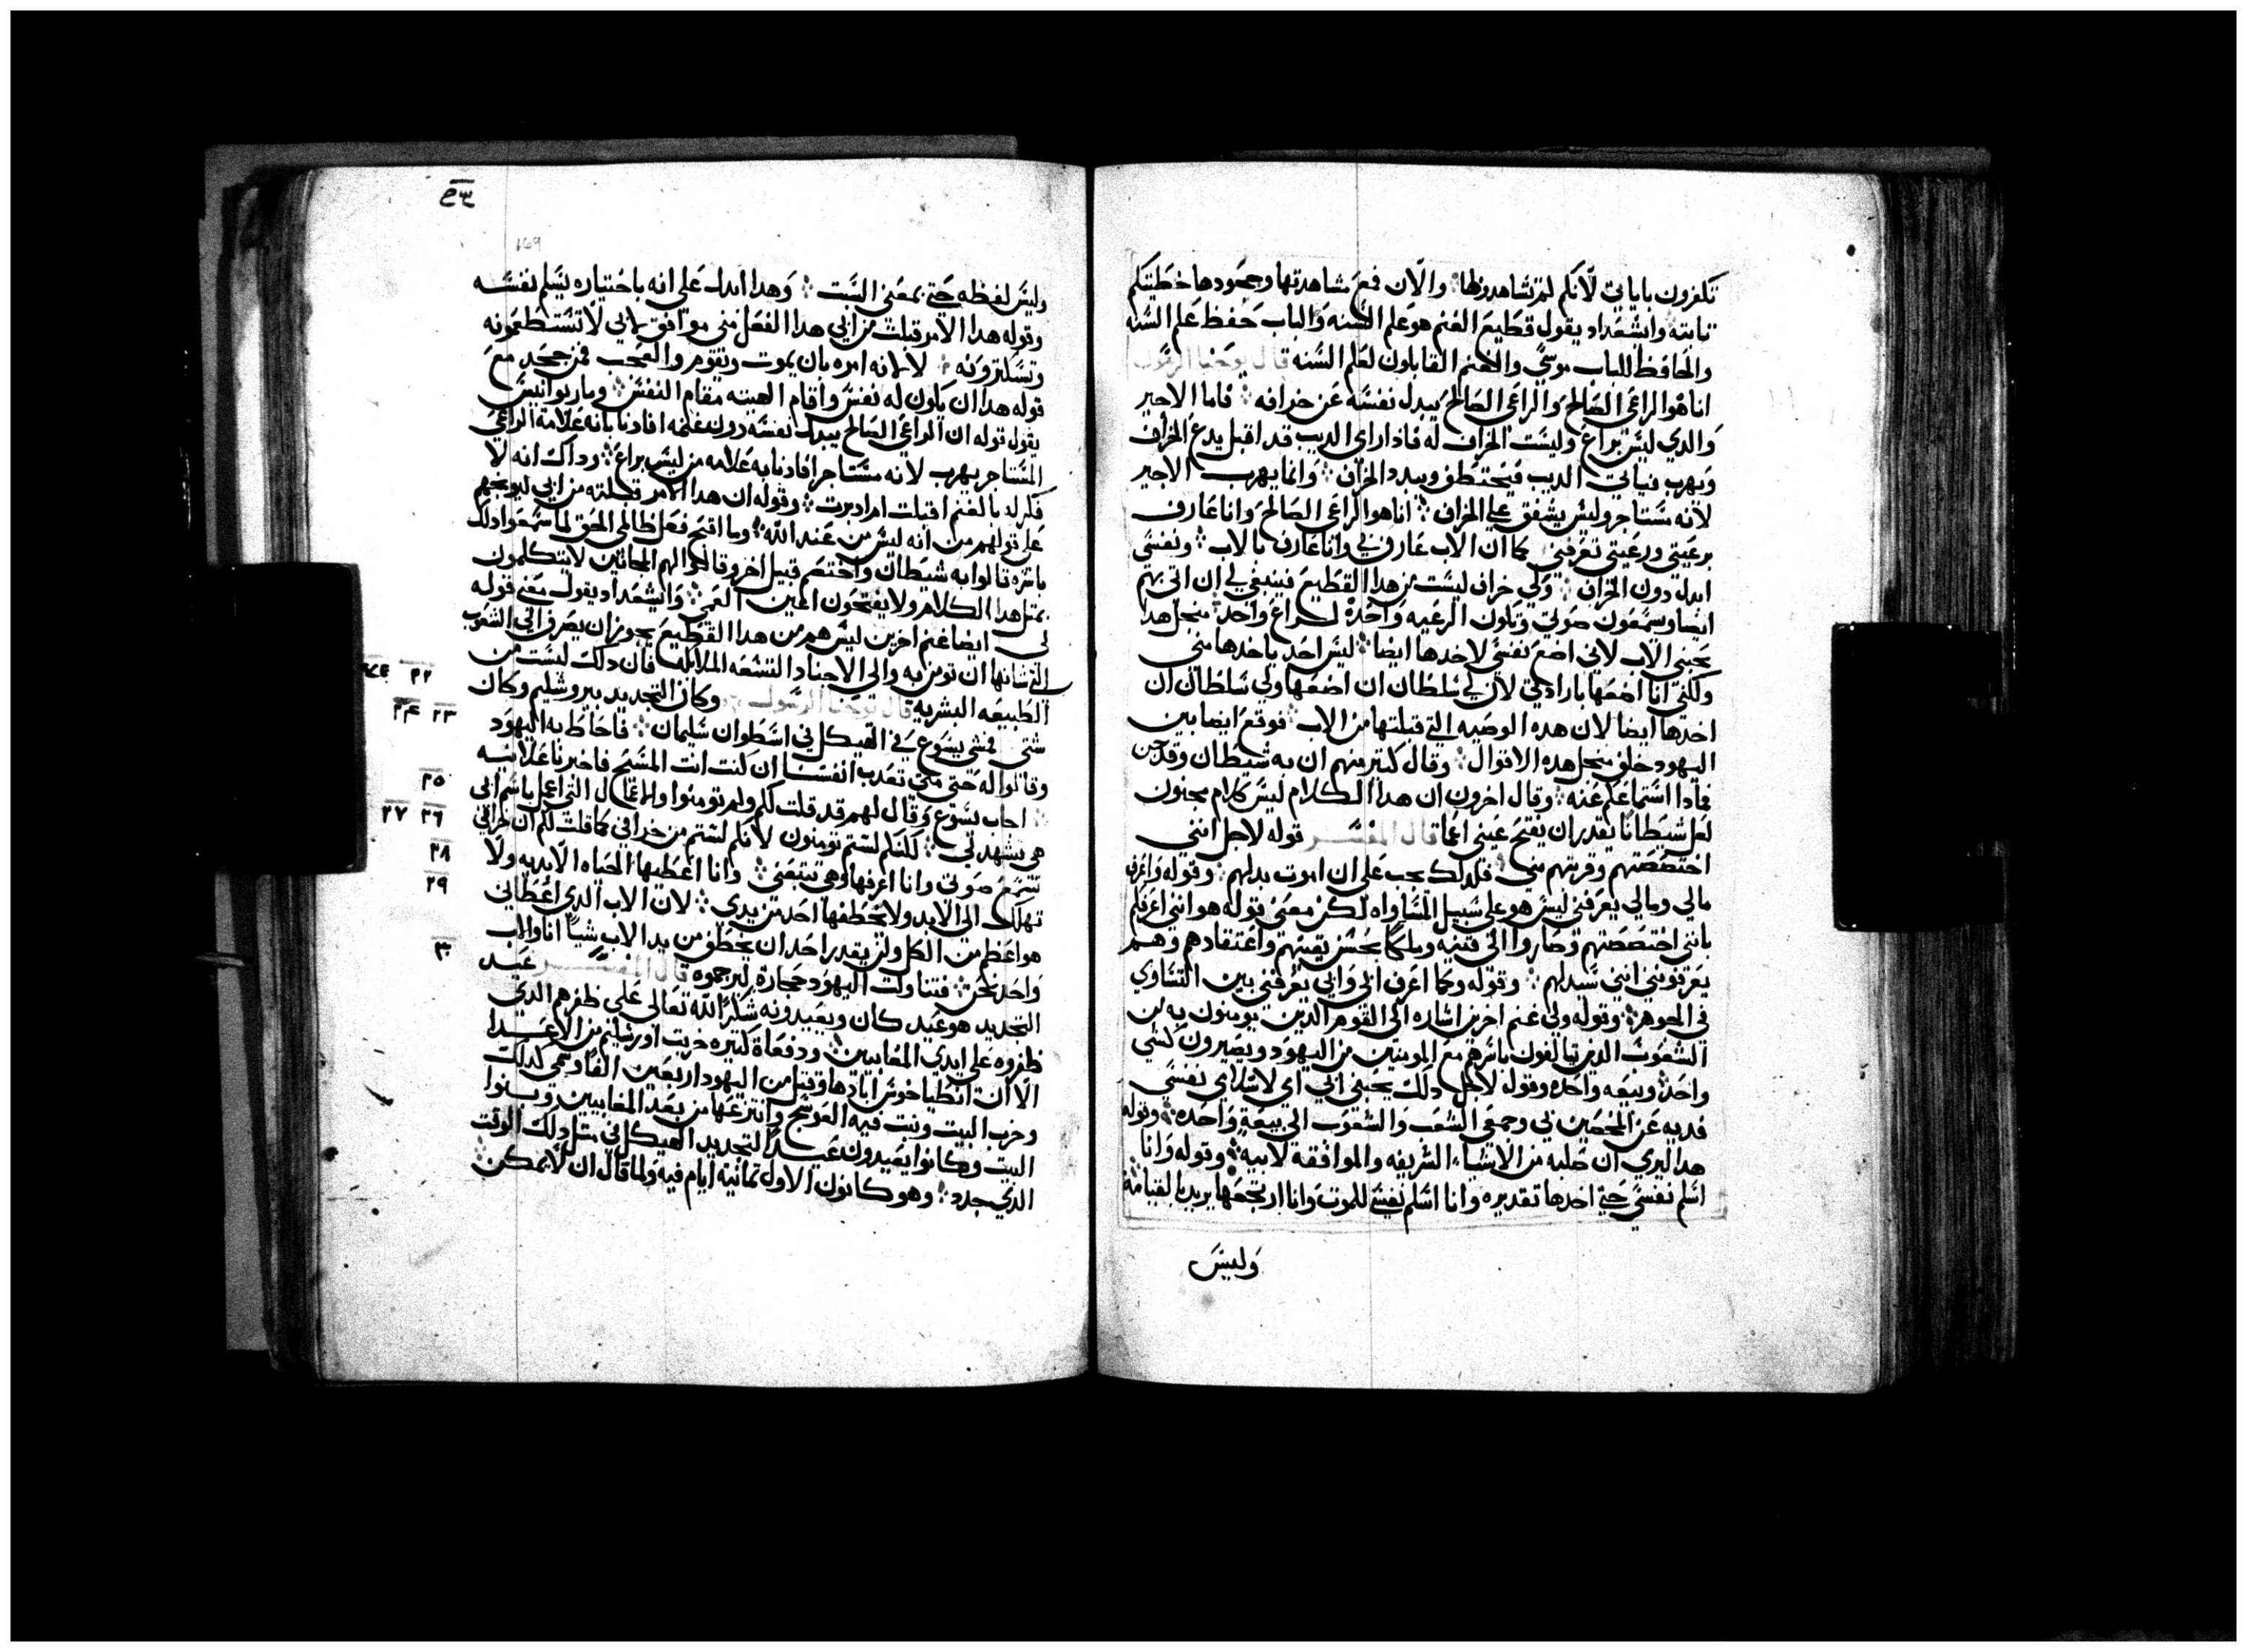 تكفرون باياتي لانكم لم تشاهدونها والان فمع مشاهدتها وجحودها خطيتكم
تابته وايشعداد يقول قطيع الغنم هو علم السنه والباب حفظ علم السنه
والحافظ للباب موسي والغنم القابلون لعلم السنه قال يوحنا الرسول
انا هو الراعي الصالح والراعي الصالح يبدل نفسه عن خرافه فاما الاجير
والدي ليس براع وليست الخراف له فادا راي الديب قد اقبل يدع الخراف
ويهرب فياتي الديب فيختطف ويبدد الخراف وانما يهرب الاجير
لانه مستاجر وليس يشفق علي الخراف انا هو الراعي الصالح وانا عارف
برعيتي ورعيتي تعرفني كما ان الاب عارف بي وانا عارف بالاب ونفسي
ابدل دون الخراف ولي خراف ليست من هدا القطيع فينبغي لي ان اتي بهم
ايضا ويسمعون صوتي وتكون الرعيه واحدة لراع واحد منجل هدا
يحبني الاب لاني اضع نفسي لاخدها ايضا ليس احد ياخدها مني
ولكني انا اضعها بارادتي لان لي سلطان ان اضعها ولي سلطان ان
اخدها ايضا لان هده الوصيه التي قبلتها من الاب فوقع ايضا بين
اليهود خلف منجل هده الاقوال وقال كتير منهم ان به شيطان وقد جن
فمادا استماعكم عنه وقال اخرون ان هدا الكلام ليس كلام مجنون
لعل شيطانا يقدر ان يفتح عيني اعما قال المفسر قوله لاجل انني
اختصصتهم وقربتهم مني فلدلك يجب علي ان اموت بدلهم وقوله واعرف
مالي ومالي يعرفني ليس هو علي سبيل المساواه لكن معني قوله هو انني اعرفكم
بانني اختصصتهم وصاروا الي قنيه وملكا بحسن يقينهم واعتقادهم وهم
يعرفونني انني سيدلهم وقوله وكما اعرف ابي وابي يعرفني بين التساوي
في الجوهر وقوله ولي غنم اخرين اشاره الي القوم الدين يومنون به من
الشعوب الدين يتالفون باسرهم مع المومنين من اليهود ويصيرون كشي
واحد وبيعه واحده وقوله لاجل دلك يحبني ابي اي لاسلامي نفسي
فديه عن المختصين بي وجمعي الشعب والشعوب الي بيعة واحده وقوله
هدا ليري ان صلبه من الاشياء الشريفه والموافقه لابيه وقوله وانا
اسلم نفسي حتي اخدها تقديره وانا اسلم نفسي للموت وانا ارتجعها يريد بالقيامة
وليس
169
وليس لفظه حتي بمعني السبب وهدا ايدل علي انه باختياره يسلم نفسه
وقوله هدا الامر قبلت من ابي هدا الفعل مني موافق لابي لا تستطعونه
لا لانه امره بان يموت ويقوم والعجب فمن جحد مع
قوله هدا ان يكون له نفس واقام الهيته مقام النفس وماربوانيس
يقول قوله ان الراعي الصالح يبدل نفسه دون غنمه افادنا بانه علامة الراعي
المستاجر يهرب لانه مستاجر افادنا به علامه من ليس براع وداك انه لا
فكر له بالغنم اقبلت ام ادبرت وقوله ان هدا الامر قبلته من ابي ليوبخهم
علي قولهم من انه ليس من عند الله وما اقبح فعل ظالمي الحق لما سمعوا دلك
باسره قالوا به شيطان واختصم قبيل اخر وقالوا لهم المجانين لا يتكلمون
بمتل هدا الكلام ولا يفتحون اعين العمي وايشعداد يقول معني قوله
لي ايضا غنم اخرين ليس هم من هدا القطيع يجوز ان يصرف الي الشعوب
التي شانها ان تومن به والي الاجناد التسعه الملايكه فان دلك ليست من
الطبيعه البشريه قال يوحنا الرسول وكان التجديد بيروشليم وكان
شتى فمشي يسوع في الهيكل في اسطوان سليمان فاحاط به اليهود
وقالوا له حتي متي تعدب انفسنا ان كنت انت المسيح فاخبرنا علانيه
اجاب يسوع وقال لهم قد قلت لكم ولم تومنوا والاعمال التي اعمل باسم ابي
هي تشهد لي لكنكم لستم تومنون لانكم لستم من خرافي كما قلت لكم ان خرافي
تسمع صوتي وانا اعرفها وهي تتبعني وانا اعطيها الحياه الابديه ولا
تهلك الي الابد ولا يختطفها احد من يدي لان الاب الدي اعطاني
هو اعظم من الكل ولن يقدر احد ان يختطف من يد الاب شيا انا والاب
واحد نحن فتناولت اليهود حجارة ليرجموه قال المفسر عيد
التجديد هو عيد كان ويعيدونه شكرا لله تعالي علي ظفرهم الدي
ظفروه علي ايدي المقابيين ودفعاة كتيره خربت اورشليم من الاعدا
الا ان انطياخوس ابادها وقتل من اليهود اربعين الفا وسبي كدلك
وخرب البيت وبنت فيه العوسج وانتزعها من بعد المقابيين وبنوا
البيت وكانوا يعيدون عيدا لتجديد الهيكل في متل دلك الوقت
الدي جدد وهو كانون الاول تمانية ايام فيه ولما قال ان لا يمكن
٢٢
٢٣ ٢٤
٢٥
٢٦ ٢٧
٢٨
٢٩
٣٠